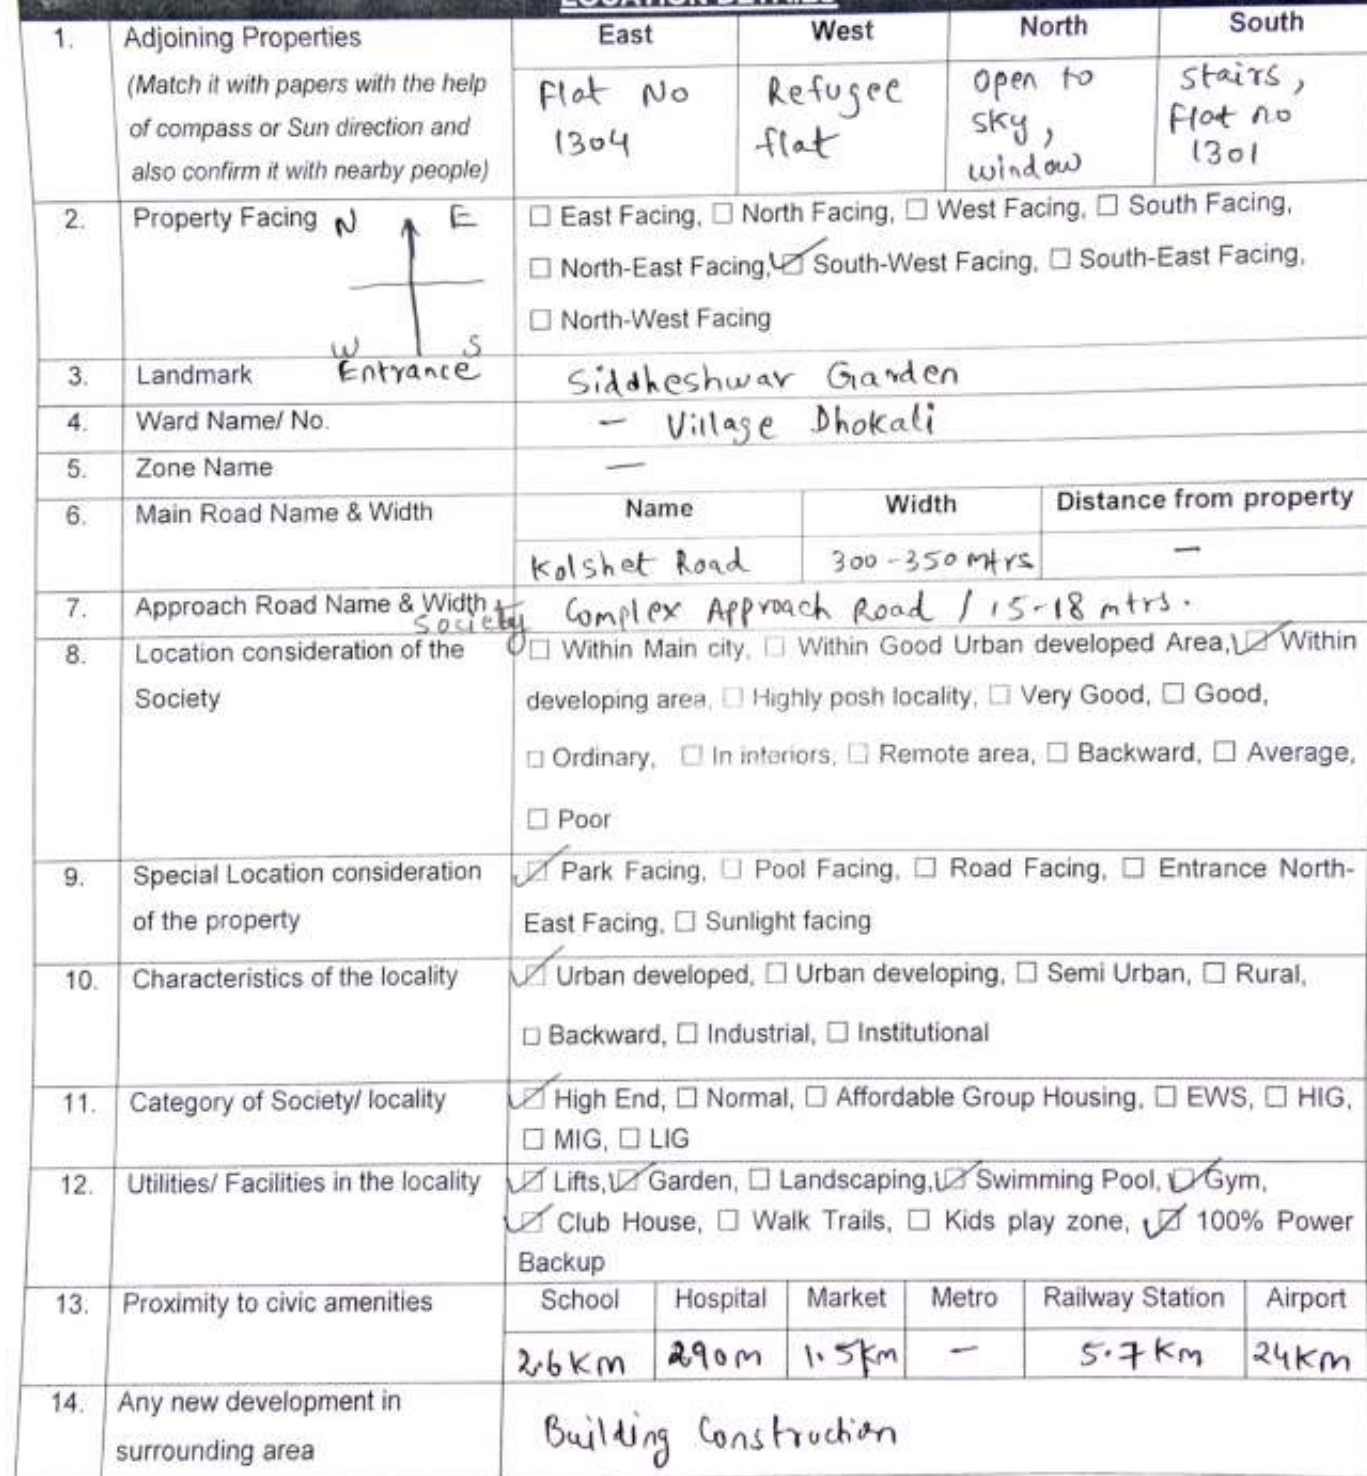 LOCATION DETAILS
1. Adjoining Properties East West North South
(Match it with papers with the help of compass or Sun direction and also confirm it with nearby people)
Flat No 1304
Refugee flat
open to sky, window
stairs, Flat no 1301
2. Property Facing N E
W S
Entrance
☐ East Facing, ☐ North Facing, ☐ West Facing, ☐ South Facing,
☐ North-East Facing, ☑ South-West Facing, ☐ South-East Facing,
☐ North-West Facing
3. Landmark Siddheshwar Garden
4. Ward Name/ No. — Village Dhokali
5. Zone Name —
6. Main Road Name & Width Name Width Distance from property
Kolshet Road 300-350 mtrs —
7. Approach Road Name & Width Society Complex Approach Road / 15-18 mtrs.
8. Location consideration of the
Society
☐ Within Main city, ☐ Within Good Urban developed Area, ☑ Within
developing area, ☐ Highly posh locality, ☐ Very Good, ☐ Good,
☐ Ordinary, ☐ In interiors, ☐ Remote area, ☐ Backward, ☐ Average,
☐ Poor
9. Special Location consideration
of the property
☑ Park Facing, ☐ Pool Facing, ☐ Road Facing, ☐ Entrance North-
East Facing, ☐ Sunlight facing
10. Characteristics of the locality
☑ Urban developed, ☐ Urban developing, ☐ Semi Urban, ☐ Rural,
☐ Backward, ☐ Industrial, ☐ Institutional
11. Category of Society/ locality
☑ High End, ☐ Normal, ☐ Affordable Group Housing, ☐ EWS, ☐ HIG,
☐ MIG, ☐ LIG
12. Utilities/ Facilities in the locality
☑ Lifts, ☑ Garden, ☐ Landscaping, ☑ Swimming Pool, ☑ Gym,
☑ Club House, ☐ Walk Trails, ☐ Kids play zone, ☑ 100% Power
Backup
13. Proximity to civic amenities School Hospital Market Metro Railway Station Airport
2.6 Km 290 m 1.5 Km — 5.7 Km 24 Km
14. Any new development in
surrounding area
Building Construction